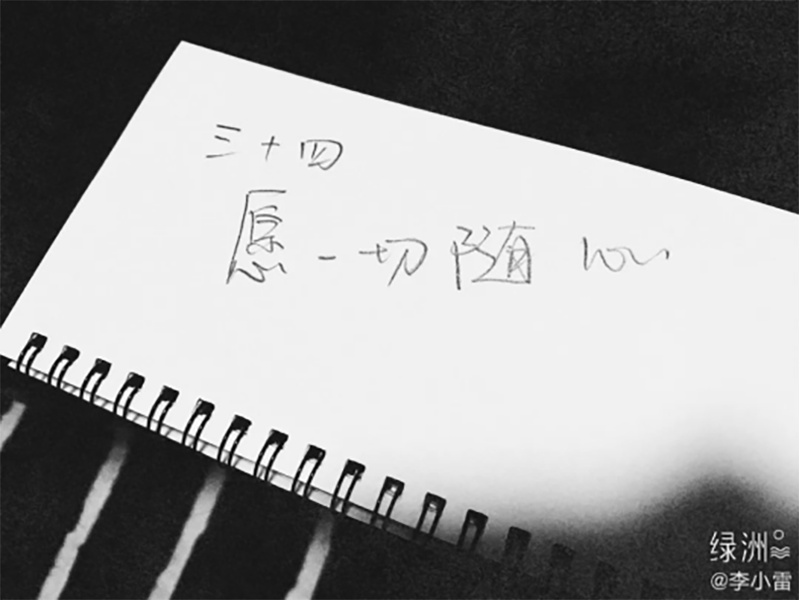 三十四
愿一切随心
绿洲
@李小雷